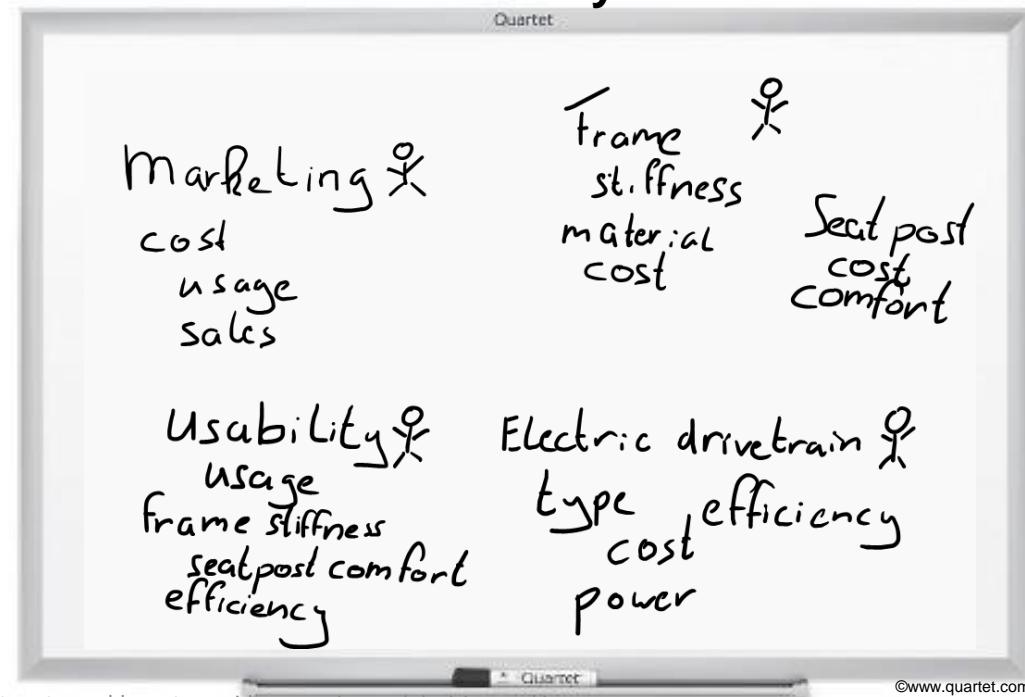 Quartet
Marketing
cost
usage
sales
Frame
stiffness
material
cost
Seat post
cost
comfort
Usability
usage
frame stiffness
seatpost comfort
efficiency
Electric drivetrain
type
efficiency
cost
power
Quartet
©www.quartet.com